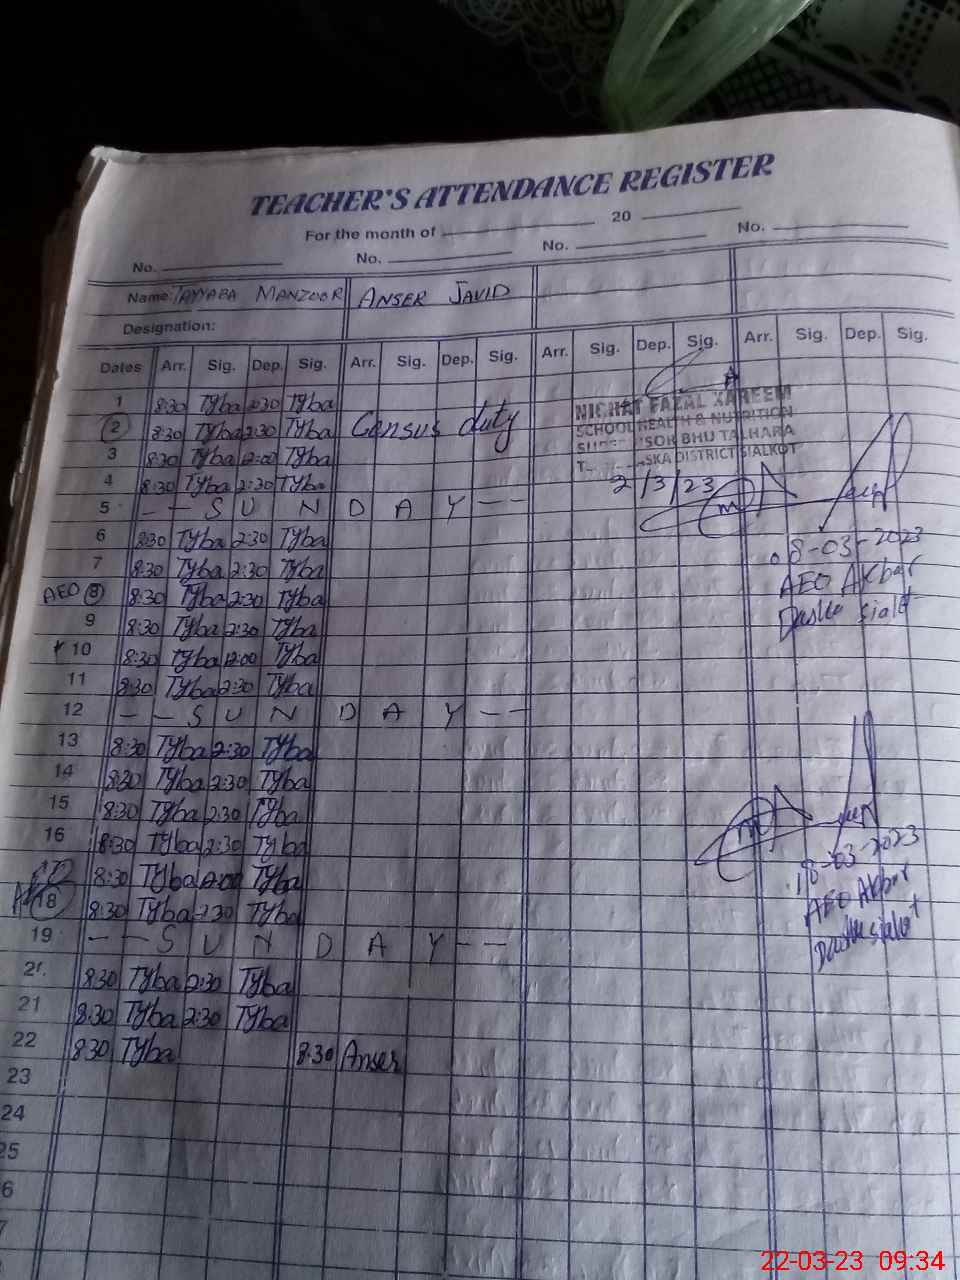 TEACHER'S ATTENDANCE REGISTER
For the month of 20
No. No. No. No.
Name: TAYYABA MANZOOR ANSER JAVID
Designation:
Dates Arr. Sig. Dep. Sig. Arr. Sig. Dep. Sig. Arr. Sig. Dep. Sig. Arr. Sig. Dep. Sig.
1 8:30 Tyba 2:30 Tyba
2 8:30 Tyba 2:30 Tyba Census duty
3 8:30 Tyba 12:00 Tyba
4 8:30 Tyba 2:30 Tyba
5 - - S U N D A Y - -
6 8:30 Tyba 2:30 Tyba
7 8:30 Tyba 2:30 Tyba
AEO 8 8:30 Tyba 2:30 Tyba
9 8:30 Tyba 2:30 Tyba
10 8:30 Tyba 12:00 Tyba
11 8:30 Tyba 2:30 Tyba
12 - - S U N D A Y - -
13 8:30 Tyba 2:30 Tyba
14 8:30 Tyba 2:30 Tyba
15 8:30 Tyba 2:30 Tyba
16 8:30 Tyba 2:30 Tyba
17 8:30 Tyba 12:00 Tyba
18 8:30 Tyba 2:30 Tyba
19 - - S U N D A Y - -
8:30 Tyba 2:30 Tyba
21 8:30 Tyba 2:30 Tyba
22 8:30 Tyba 8:30 Anser
23
24
25
6
7
NIGHAT FAZAL KAREEM
SCHOOL HEALTH & NUTRITION
SOR BHU TALHARA
SKA DISTRICT SIALKOT
2/3/23
08-03-2023
AEO Akbar
18-03-2023
AEO Akbar
22-03-23 09:34